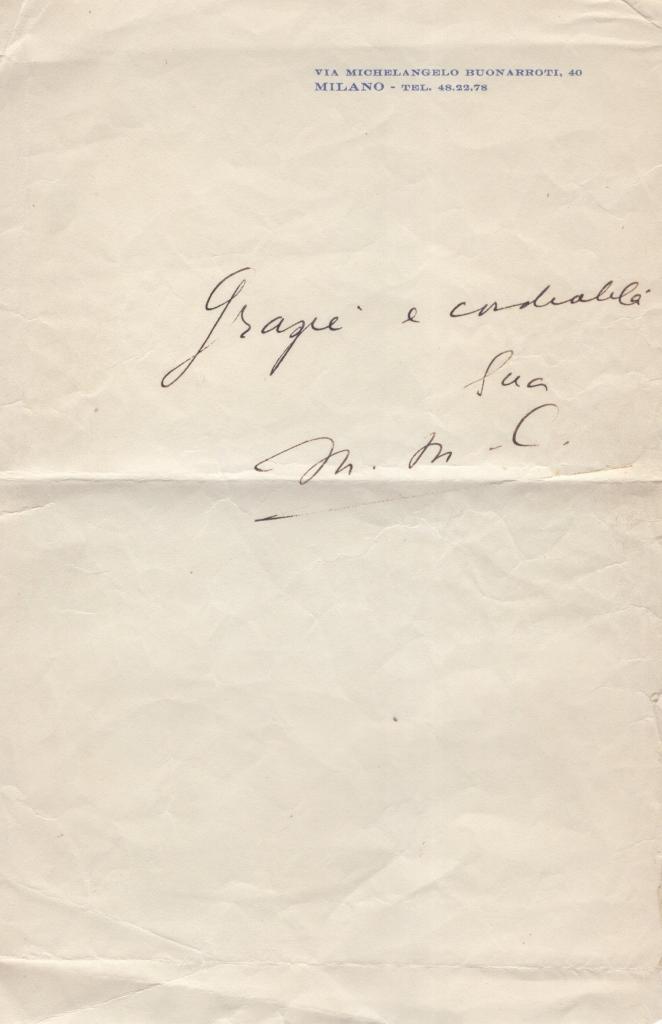 VIA MICHELANGELO BUONARROTI, 40
MILANO - TEL. 48.22.78
Grazie e cordialità
Sua
M. M. C.